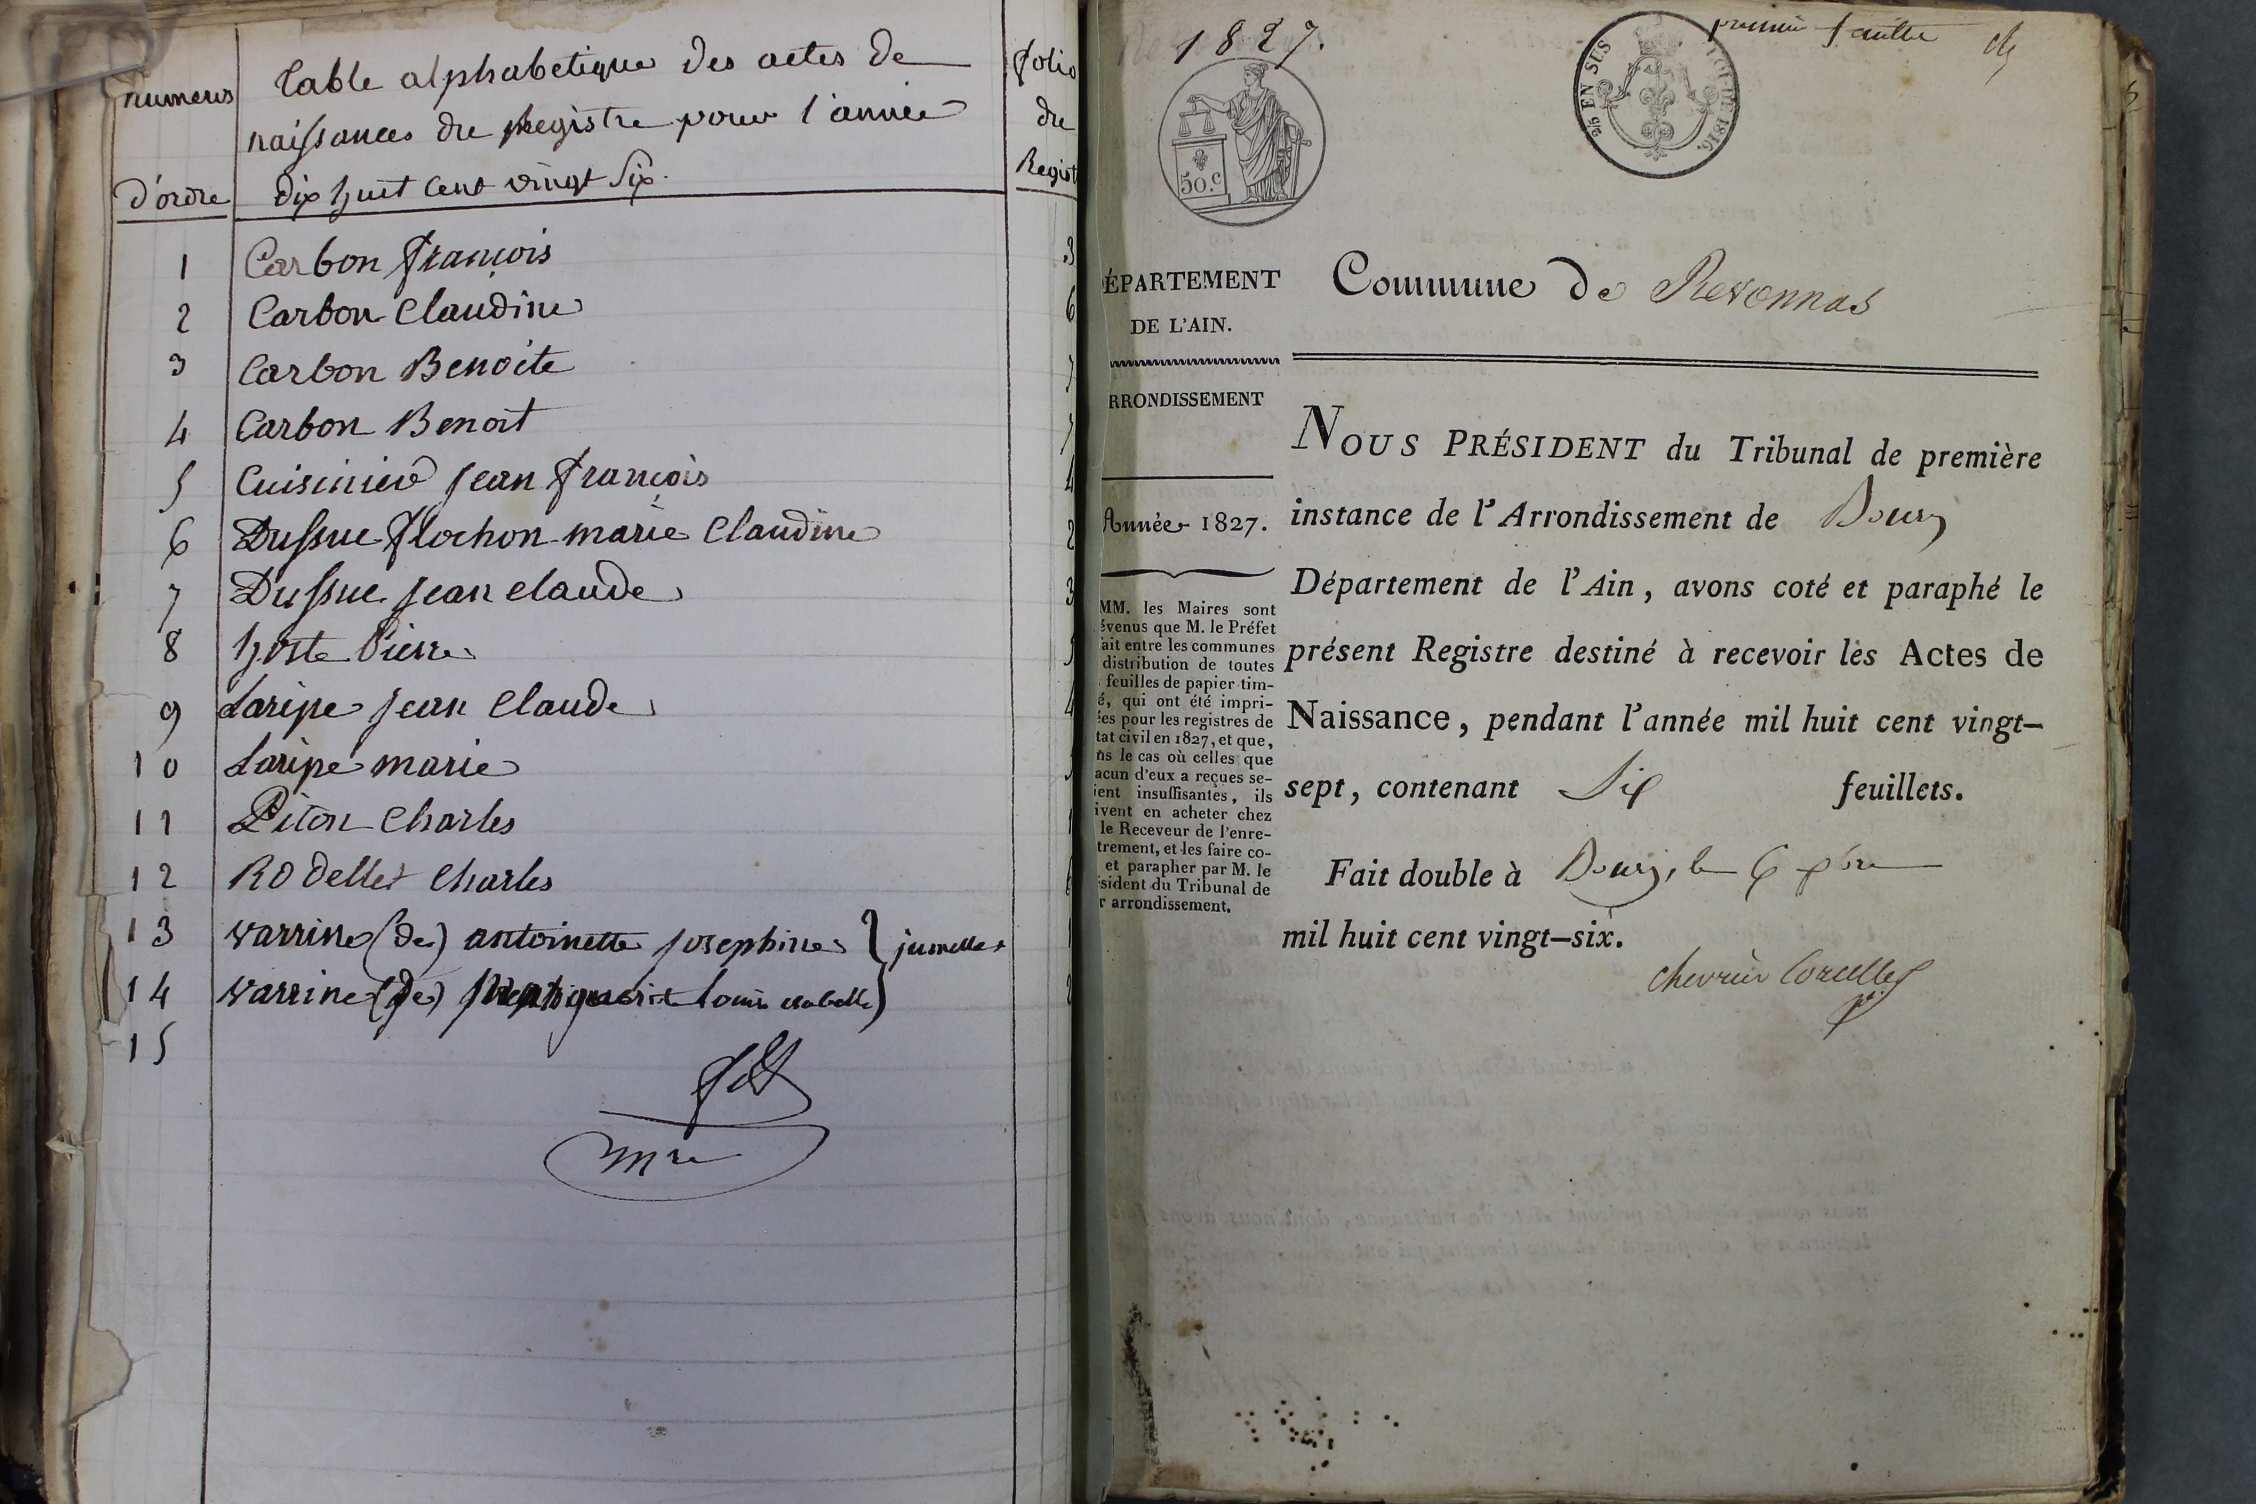 numeros
d'ordre
Table alphabetique des actes de
naissances du Registre pour l'année
dix huit cent vingt six.
folio
du
Regist
1 Carbon françois 3
2 Carbon Claudine 6
3 Carbon Benoite 7
4 Carbon Benoit 7
5 Cuisinier jean françois 4
6 Dussue flochon marie Claudine 2
7 Dussue jean claude 3
8 hoste Pierre 5
9 Laripe jean Claude 4
10 Laripe marie 5
11 Piton Charles 1
12 Rodellet Charles 6
13 Varrine (de) antoinette josephine } jumelles 1
14 Varrine (de) Louise isabelle 2
15
mre
1827.
premier feuillet
50.c
2/5 EN SUS
LOI DE 1816.
ÉPARTEMENT
DE L'AIN.
RRONDISSEMENT
Année 1827.
MM. les Maires sont
évenus que M. le Préfet
fait entre les communes
distribution de toutes
feuilles de papier tim-
é, qui ont été impri-
ées pour les registres de
tat civil en 1827, et que,
ns le cas où celles que
acun d'eux a reçues se-
ient insuffisantes, ils
ivent en acheter chez
le Receveur de l'enre-
trement, et les faire co-
et parapher par M. le
ésident du Tribunal de
r arrondissement.
Commune de Revonnas
NOUS PRÉSIDENT du Tribunal de première
instance de l'Arrondissement de Bourg
Département de l'Ain, avons coté et paraphé le
présent Registre destiné à recevoir les Actes de
Naissance, pendant l'année mil huit cent vingt-
sept, contenant Six feuillets.
Fait double à Bourg, le 6 xbre
mil huit cent vingt-six.
chevrier Corcelles